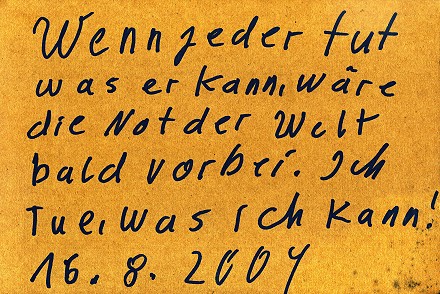 Wenn jeder tut
was er kann, wäre
die Not der Welt
bald vorbei. Ich
Tue, was ich kann!
16. 8. 2004